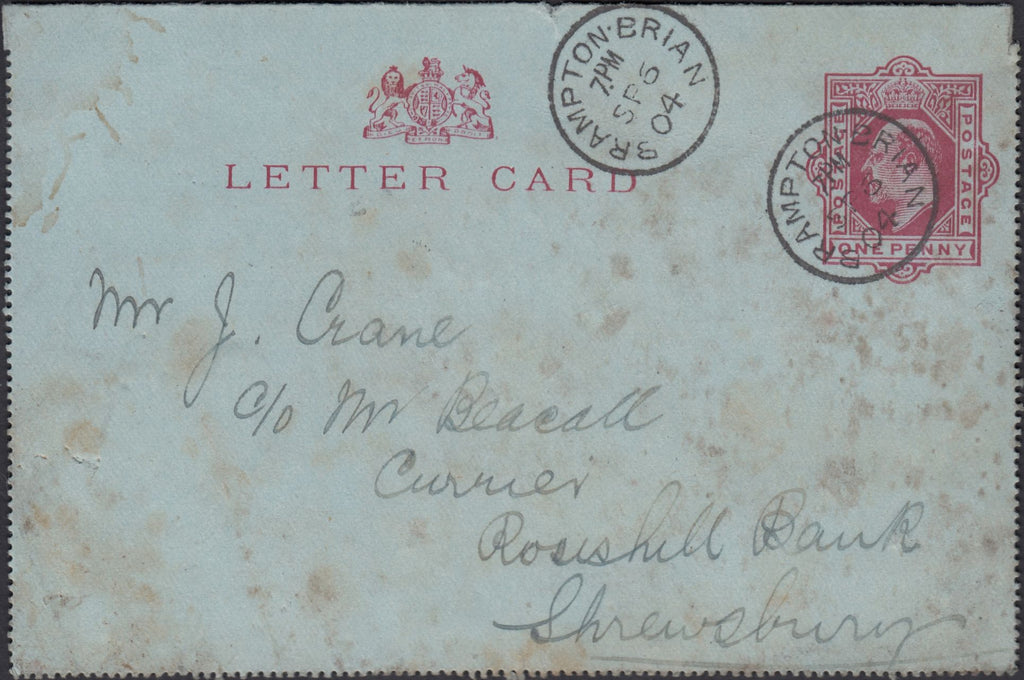 BRAMPTON·BRIAN
7.PM
SP 6
04
LETTER CARD
POSTAGE
ONE PENNY
BRAMPTON·BRIAN
7.PM
SP 6
04
Mr J. Crane
c/o Mr Beacall
Currier
Roseshill Bank
Shrewsbury